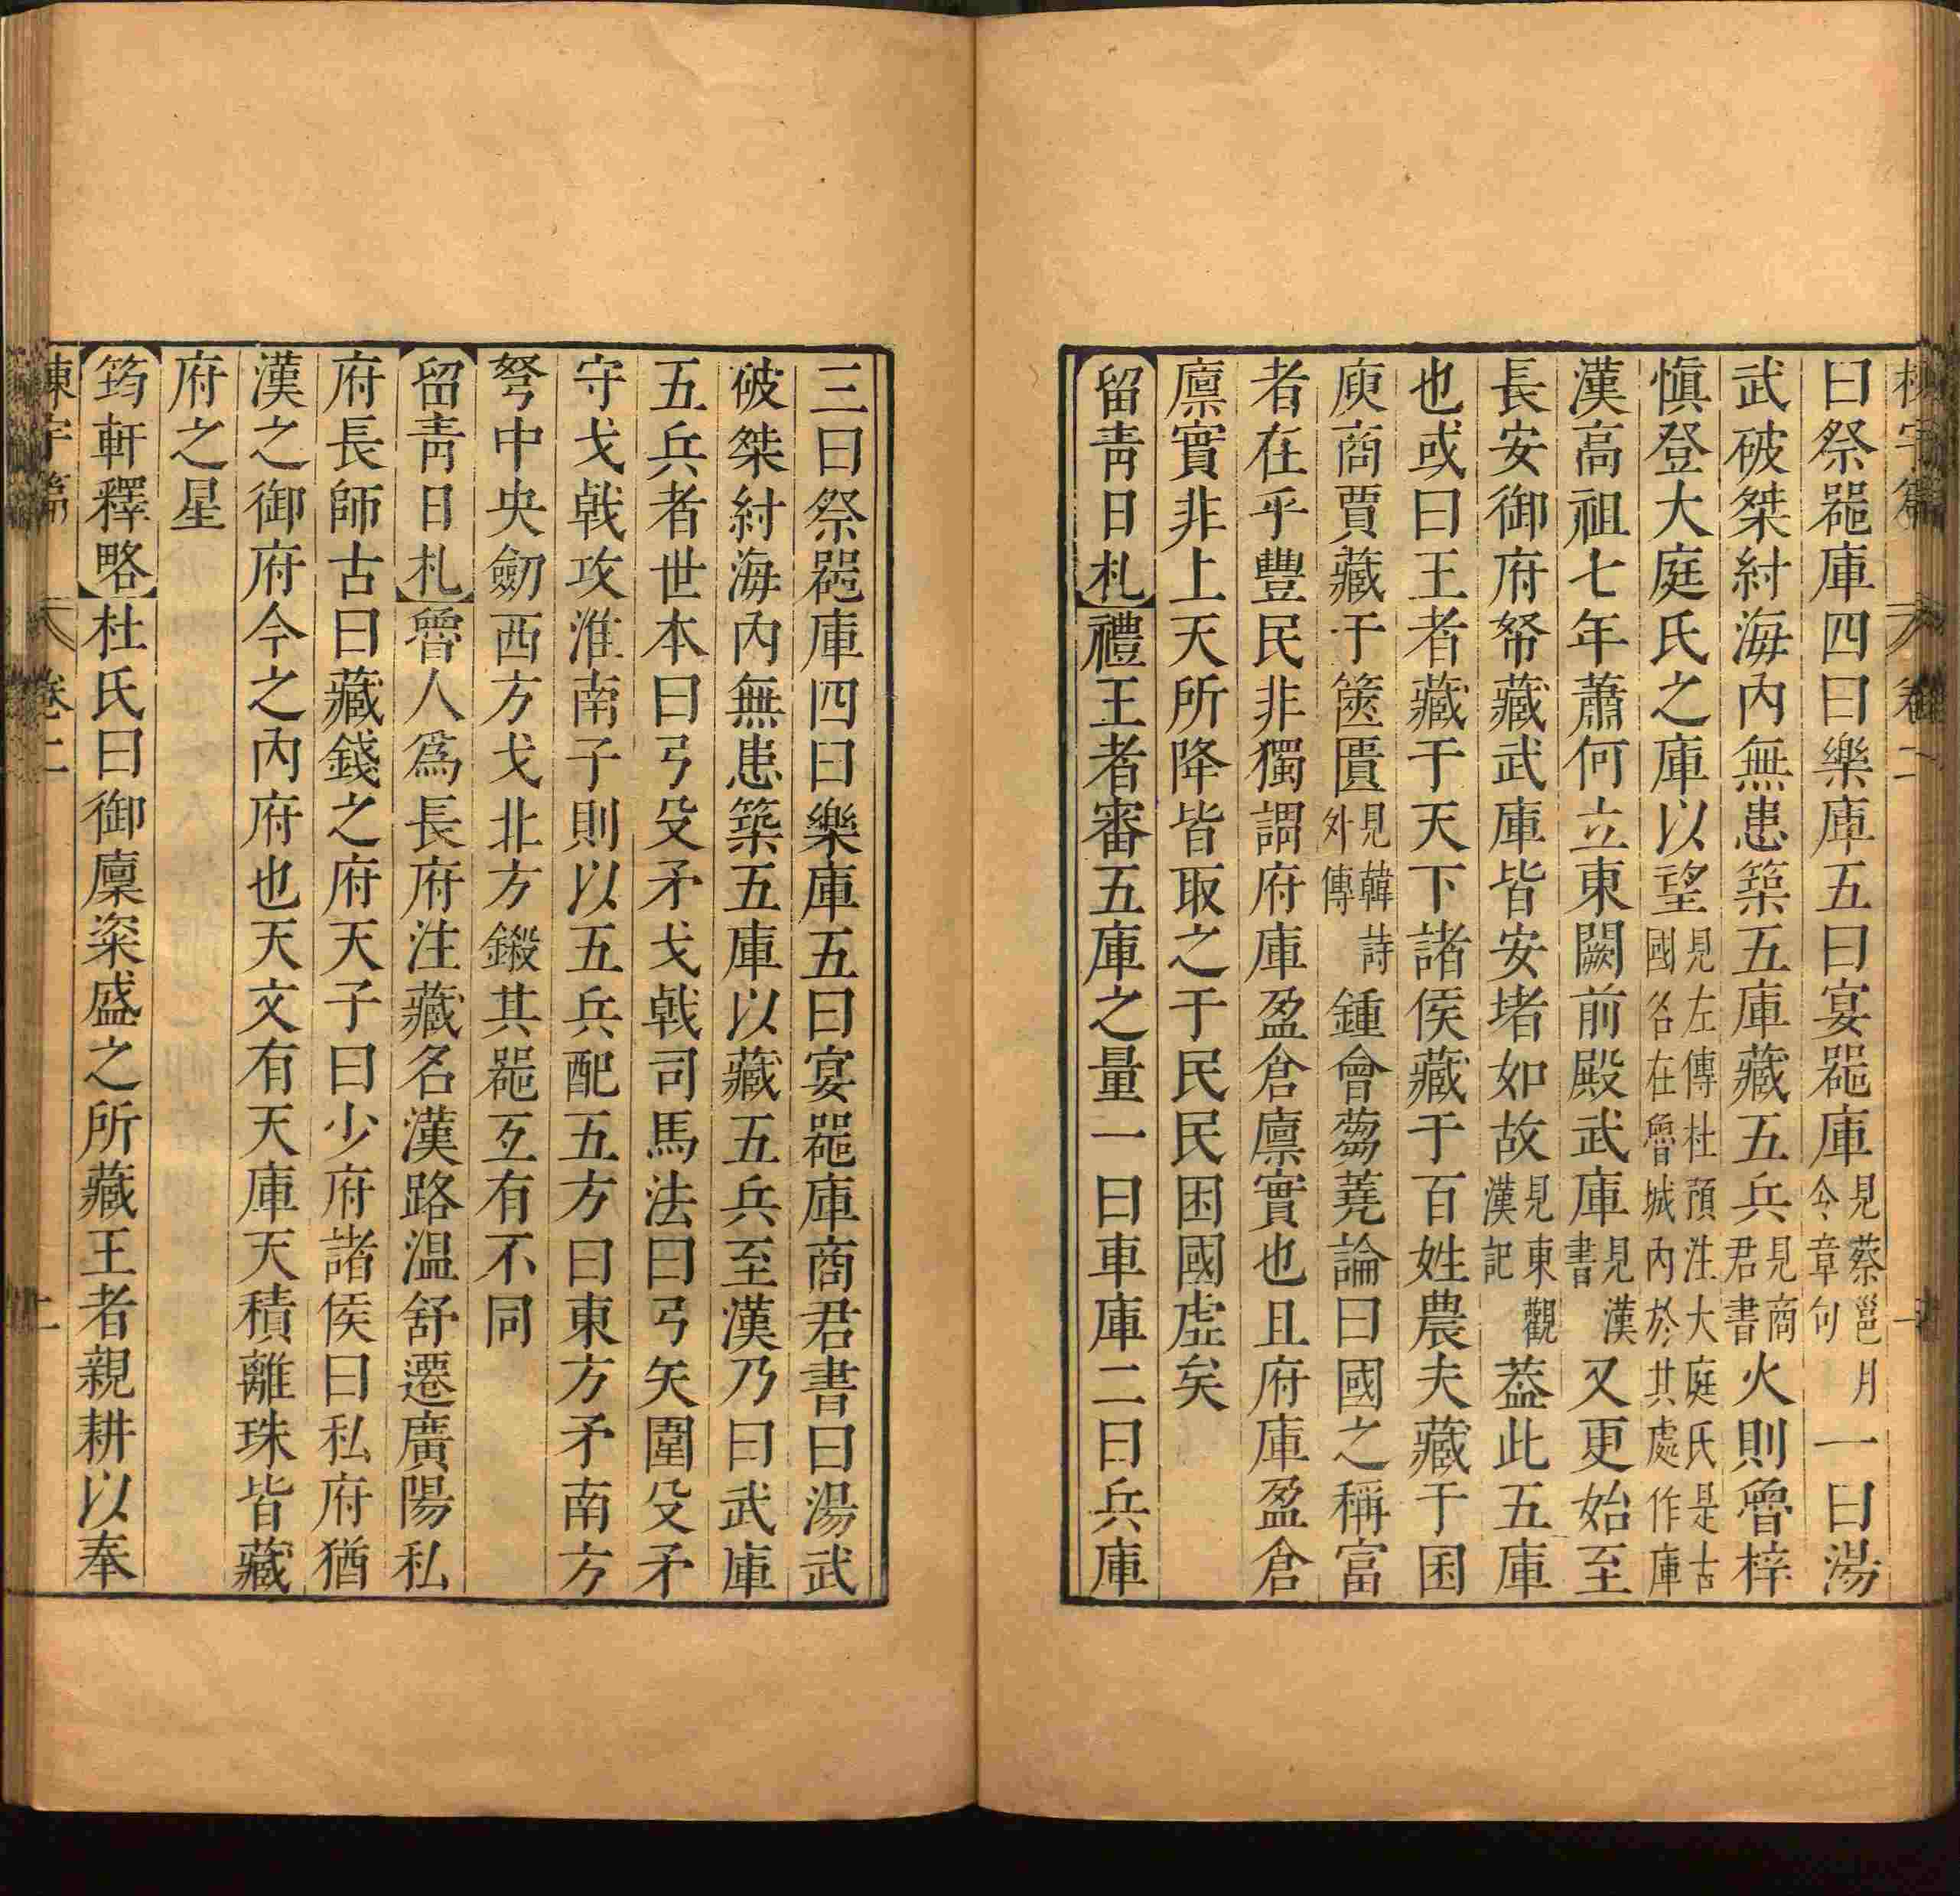 棟宇篇 卷二
曰祭噐庫四曰樂庫五曰宴噐庫見蔡邕月令章句一曰湯
武破桀紂海内無患築五庫藏五兵見商君書火則魯梓
慎登大庭氏之庫以望見左傳杜預注大庭氏是古國名在魯城内於其處作庫
漢高祖七年蕭何立東闕前殿武庫見漢書又更始至
長安御府帑藏武庫皆安堵如故見東觀漢記葢此五庫
也或曰王者藏于天下諸侯藏于百姓農夫藏于囷
庾商賈藏于篋匱見韓詩外傳鍾會蒭蕘論曰國之稱富
者在乎豐民非獨謂府庫盈倉廪實也且府庫盈倉
廪實非上天所降皆取之于民民困國虛矣
留青日札禮王者審五庫之量一曰車庫二曰兵庫
三曰祭噐庫四曰樂庫五曰宴噐庫商君書曰湯武
破桀紂海内無患築五庫以藏五兵至漢乃曰武庫
五兵者世本曰弓殳矛戈戟司馬法曰弓矢圍殳矛
守戈戟攻淮南子則以五兵配五方曰東方矛南方
弩中央劒西方戈北方鎩其噐互有不同
留青日札魯人爲長府注藏名漢路温舒遷廣陽私
府長師古曰藏錢之府天子曰少府諸侯曰私府猶
漢之御府今之内府也天文有天庫天積離珠皆藏
府之星
筠軒釋略杜氏曰御廩粢盛之所藏王者親耕以奉
棟宇篇 卷二